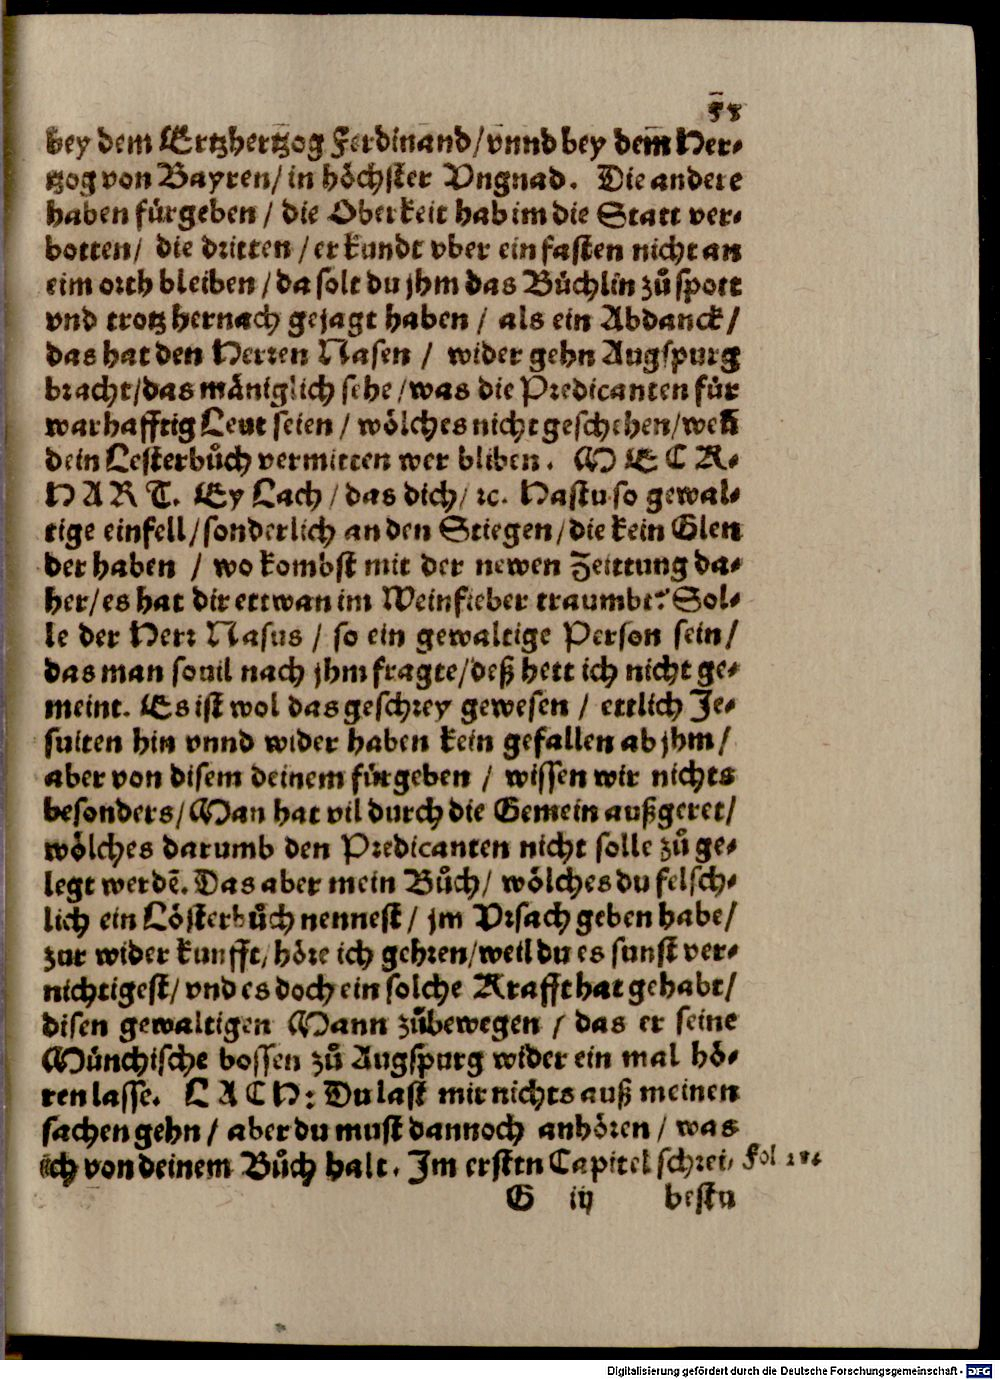 55
bey dem Ertzhertzog Ferdinand/vnnd bey dem Her⸗
tzog von Bayren/ in höchster Vngnad. Die andere
haben fürgeben / die Oberkeit hab im die Statt ver⸗
botten/ die dritten / er kundt vber ein fasten nicht an
eim orth bleiben / da solt du jhm das Büchlin zů spott
vnd trotz hernach gejagt haben / als ein Abdanck/
das hat den Herren Nasen / wider gehn Augspurg
bracht/das mäniglich sehe/was die Predicanten für
warhafftig Leut seien / wölches nicht geschehen/weñ
dein Lesterbůch vermitten wer bliben. M E C K⸗
H A R T. Ey Lach / das dich/ ꝛc. Hastu so gewal⸗
tige einfell/sonderlich an den Stiegen/die kein Glen
der haben / wo kombst mit der newen Zeittung da⸗
her/es hat dir ettwan im Weinfieber traumbt? Sol⸗
le der Herr Nasus / so ein gewaltige Person sein/
das man souil nach jhm fragte/deß hett ich nicht ge⸗
meint. Es ist wol das geschrey gewesen / ettlich Je⸗
suiten hin vnnd wider haben kein gefallen ab jhm/
aber von disem deinem fürgeben / wissen wir nichts
besonders/Man hat vil durch die Gemein außgeret/
wölches darumb den Predicanten nicht solle zů ge⸗
legt werdē. Das aber mein Bůch/ wölches du felsch⸗
lich ein Lösterbůch nennest / jm Vrsach geben habe/
zur wider kunfft/höre ich gehren/weil du es sunst ver⸗
nichtigest/ vnd es doch ein solche Krafft hat gehabt/
disen gewaltigen Mann zůbewegen / das er seine
Münchische bossen zů Augspurg wider ein mal hö⸗
ren lasse. L A C H: Du last mir nichts auß meinen
sachen gehn / aber du must dannoch anhören / was
ich von deinem Bůch halt. Im ersten Capitel schrei⸗ Fol
G iij bestu
Digitalisierung gefördert durch die Deutsche Forschungsgemeinschaft - DFG